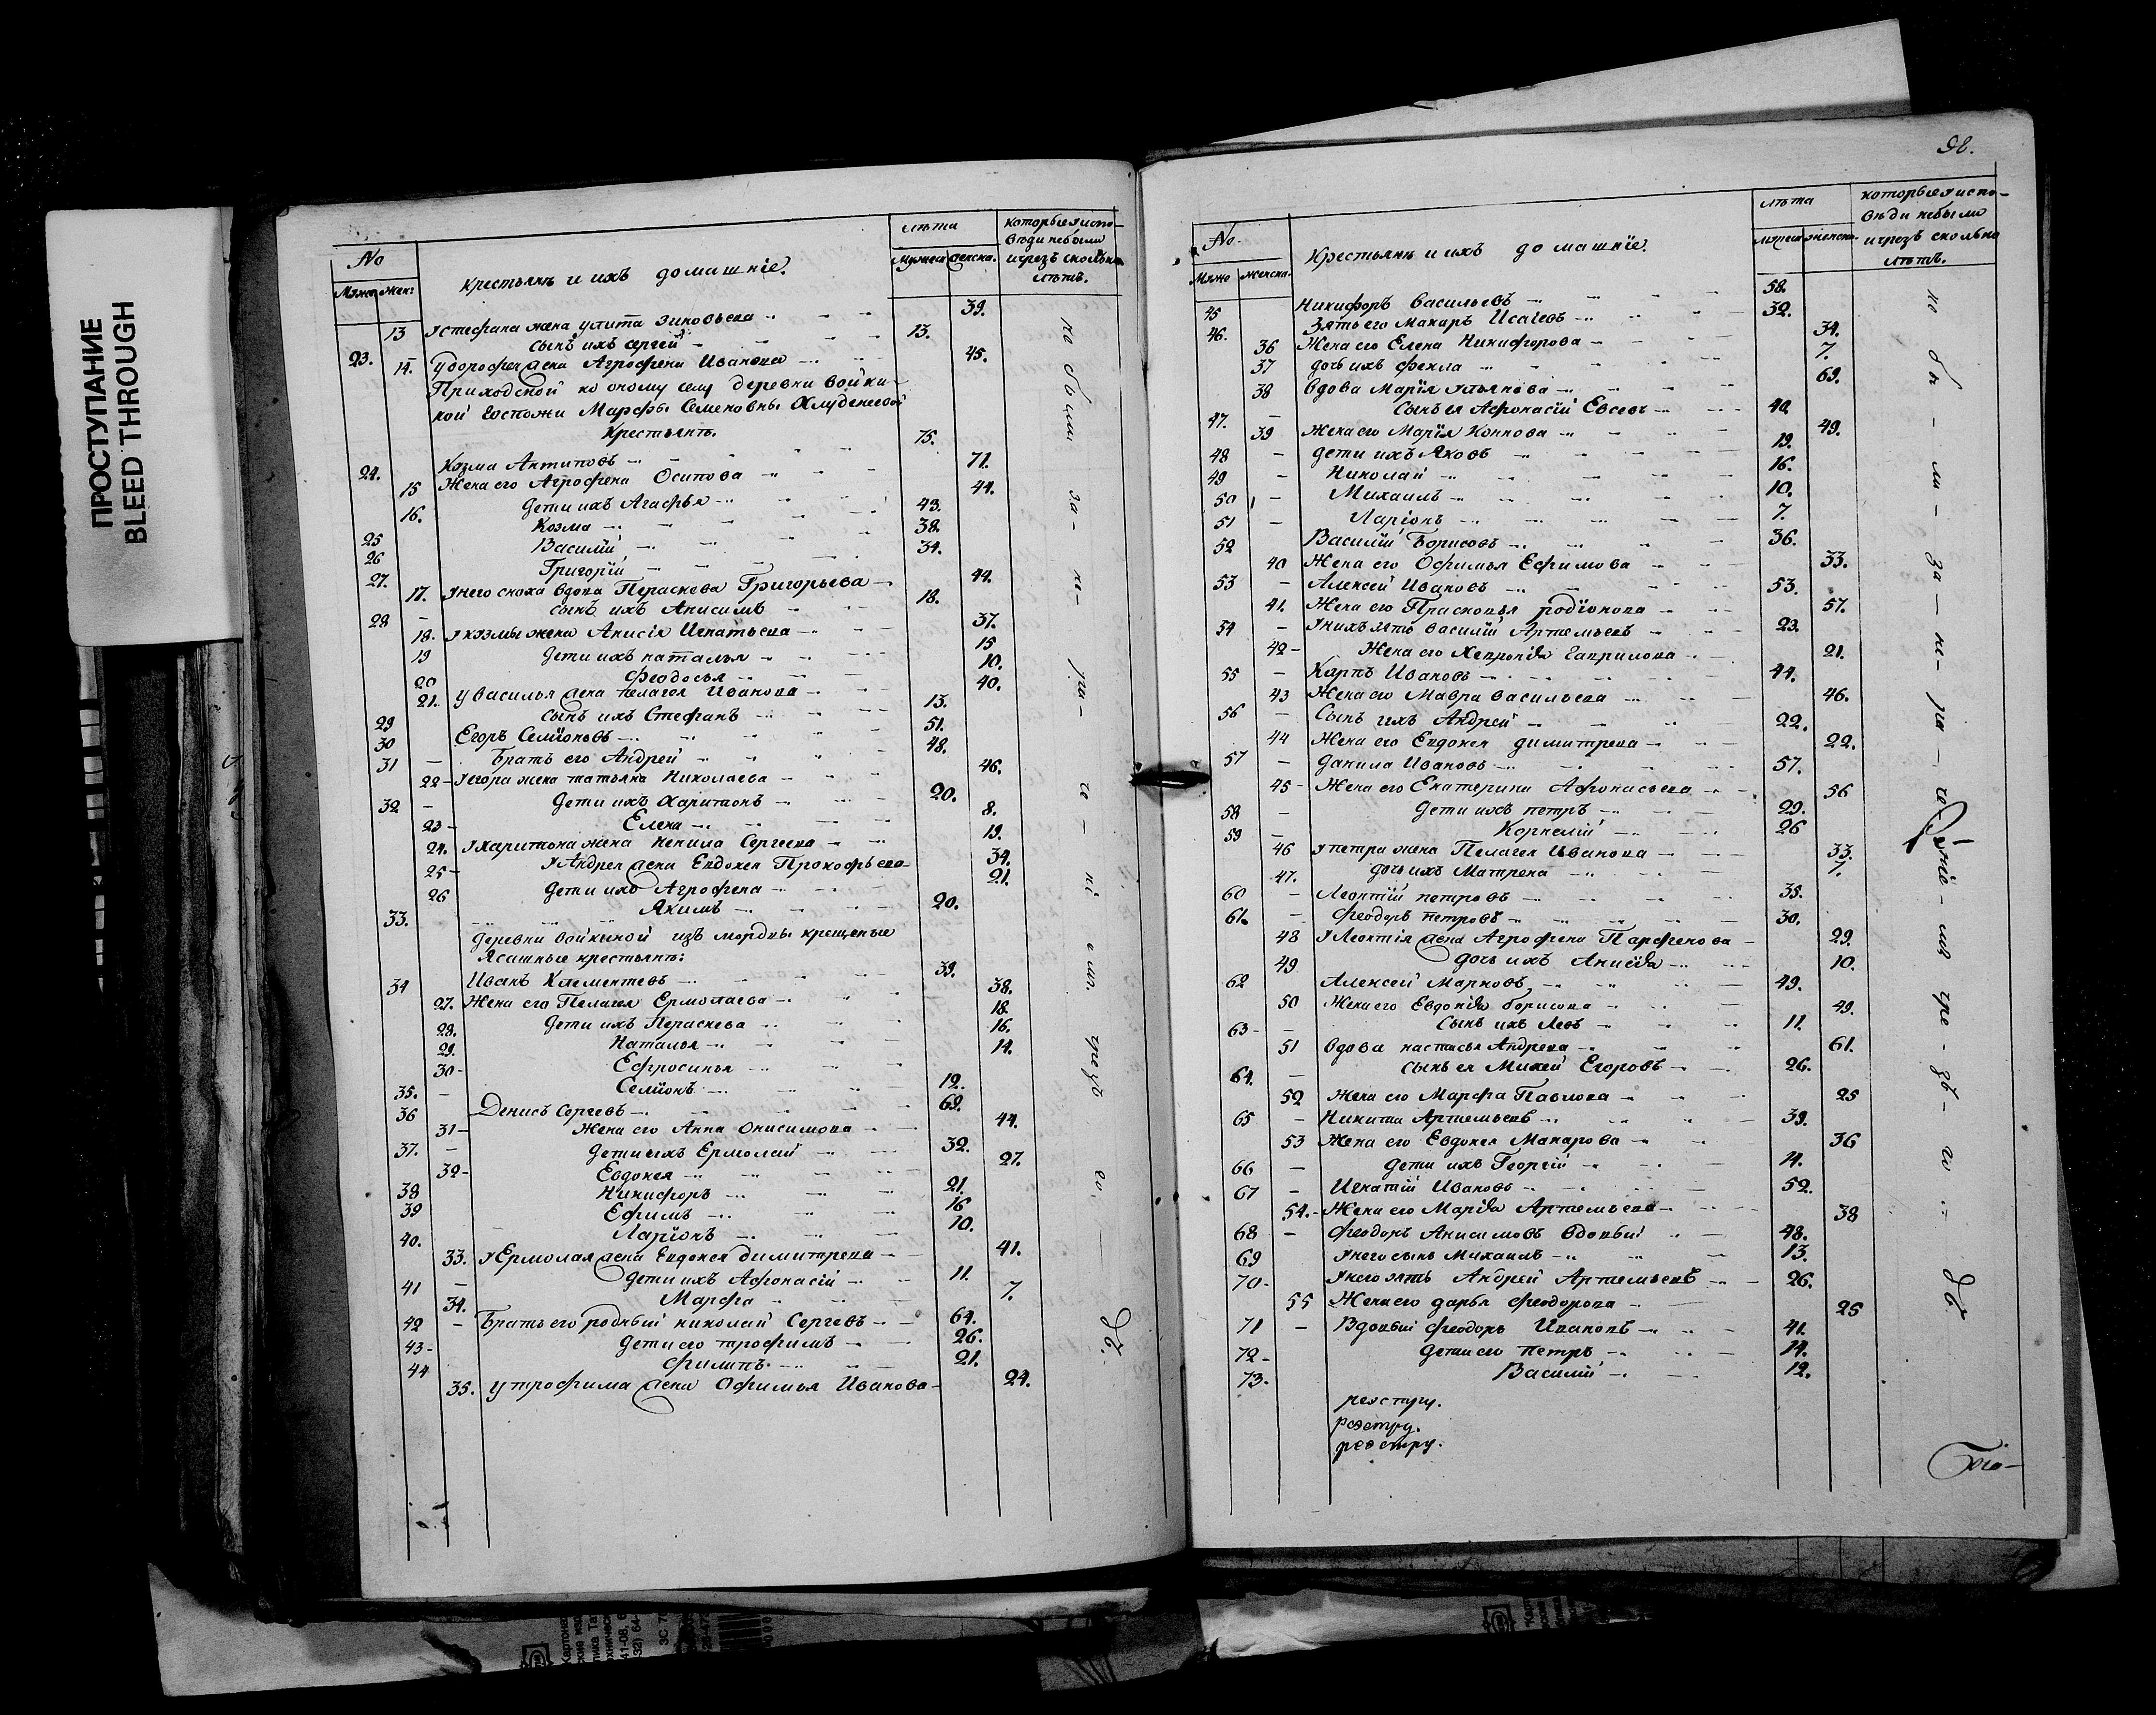 ПРОСТУПАНИЕ
BLEED THROUGH
No
Крестьянъ и ихъ домашніе.
лѣта
которыя и испо-
вѣди небыли
и чрезъ сколько
лѣтъ.
Муж. Жен:
мужеск женска.
13 у стефана жена улита Зиновьева 39.
23. сынъ ихъ сергей 13.
14. У дорофея жена Агрофена Иванова 45.
Приходской ко оному селу деревни Войки-
ной Госпожи Марфы Семеновны
Крестьянъ.
24. Козма Антиповъ 75.
15 Жена его Агрофена Осипова 71.
16. дети ихъ Агафья 44.
25 Козма 43.
26 Василій 38.
27. Григорій 34.
17. У него сноха вдова Пераскева Григорьева 44.
28 – сынъ ихъ Анисимъ 18.
18. У козмы жена Анисія Игнатьева 37.
19 дети ихъ наталья 15
20 Феодосья 10.
21. У василья жена пелагея Иванова 40.
29 сынъ ихъ Стефанъ 13.
30 Егоръ Семіоновъ 51.
31 – Братъ его Андрей 48.
22 – У егора жена татьяна Николаева 46.
32 – дети ихъ Харитонъ 20.
23 – Елена 8.
24. У харитона жена Ненила Сергеева 19.
25 – У Андрея жена Евдокея Прокофьева 34.
26 дети ихъ Агрофена 21.
33. Якимъ 20.
деревни войкиной изъ мордвы крещеные
Ясашные крестьянъ:
34 Иванъ Климентевъ 39.
27. Жена его Пелагея Ермолаева 38.
28. дети ихъ Пераскева 18.
29. Наталья 16.
30 – Ефросинья 14.
35. – Семіонъ 12.
36 Денисъ Сергевъ 69.
31 – Жена его Анна Онисимова 44.
37. – дети ихъ Ермолай 32.
32 – Евдокея 27.
38 Никифоръ 21.
39 Ефимъ 16
40. Ларіонъ 10.
33. У Ермолая жена Евдокея димитрева 41.
41 – дети ихъ Афонасій 11.
34. Марфа 7.
42 – Братъ его родный николай Сергевъ 64.
43 – дети его трофимъ 26.
44 филипъ 21.
35. у трофима жена Офимья Иванова 24.
98.
No.
Крестьянъ и ихъ домашніе.
лѣта
которыя и испо-
вѣди небыли
и чрезъ сколько
лѣтъ.
Мужс женска.
мужеск женска.
45 Никифоръ Васильевъ 58.
46. Зять его Макаръ Исаіевъ 32.
36 Жена его Елена Никифорова 34.
37 дочь ихъ фекла 7.
38 вдова Марія ульянова 69.
47. – Сынъ ея Афонасій Евсевъ 40.
39 Жена его Марія Коннова 49.
48 – дети ихъ Яковъ 19.
49 – Николай 16.
50 – Михаилъ 10.
51 – Ларіонъ 7.
52 Василій Борисовъ 36.
40 Жена его Офимья Ефимова 33.
53 – Алексей Ивановъ 53.
41. Жена его Прасковья родіонова 57.
54 – У нихъ зять василій Артемьевъ 23.
42 – Жена его Хевронія Гаврилова 21.
55 – Карпъ Ивановъ 44.
43 Жена его Мавра васильева 46.
56 – Сынъ ихъ Андрей 22.
44 Жена его Евдокея димитрева 22.
57 – данила Ивановъ 57.
45 – Жена его Екатерина Афонасьева 56
58 – дети ихъ петръ 29.
59 – Корнелій 26
46 У петра жена Пелагея Иванова 33.
47. дочь ихъ Матрена 7.
60 – Леонтій петровъ 35.
61. – Феодоръ петровъ 30.
48 У Леонтія жена Агрофена Парфенова 29.
49 дочь ихъ Анисія 10.
62 Алексей Марковъ 49.
50 Жена его Евдокія борисова 49.
63 – – Сынъ ихъ Левъ 11.
51 вдова настасья Андрева 61.
64. – сынъ ея Михей Егоровъ 26.
52 Жена его Марфа Павлова 25
65 – Никита Артемьевъ 39.
53 Жена его Евдокея Макарова 36
66 – дети ихъ Георгій 14.
67 – Игнатій Ивановъ 52.
54. – Жена его Марія Артемьева 38
68 – Феодоръ Анисимовъ Вдовый 48.
69 У него сынъ Михаилъ 13.
70 – У него зять Андрей Артемьевъ 26.
55 Жена его дарья Феодорова 25
71 – Вдовый феодоръ Ивановъ 41.
72 – дети его Петръ 14.
73 – Василій 12.
реэстру.
реэстру.
реэстру.